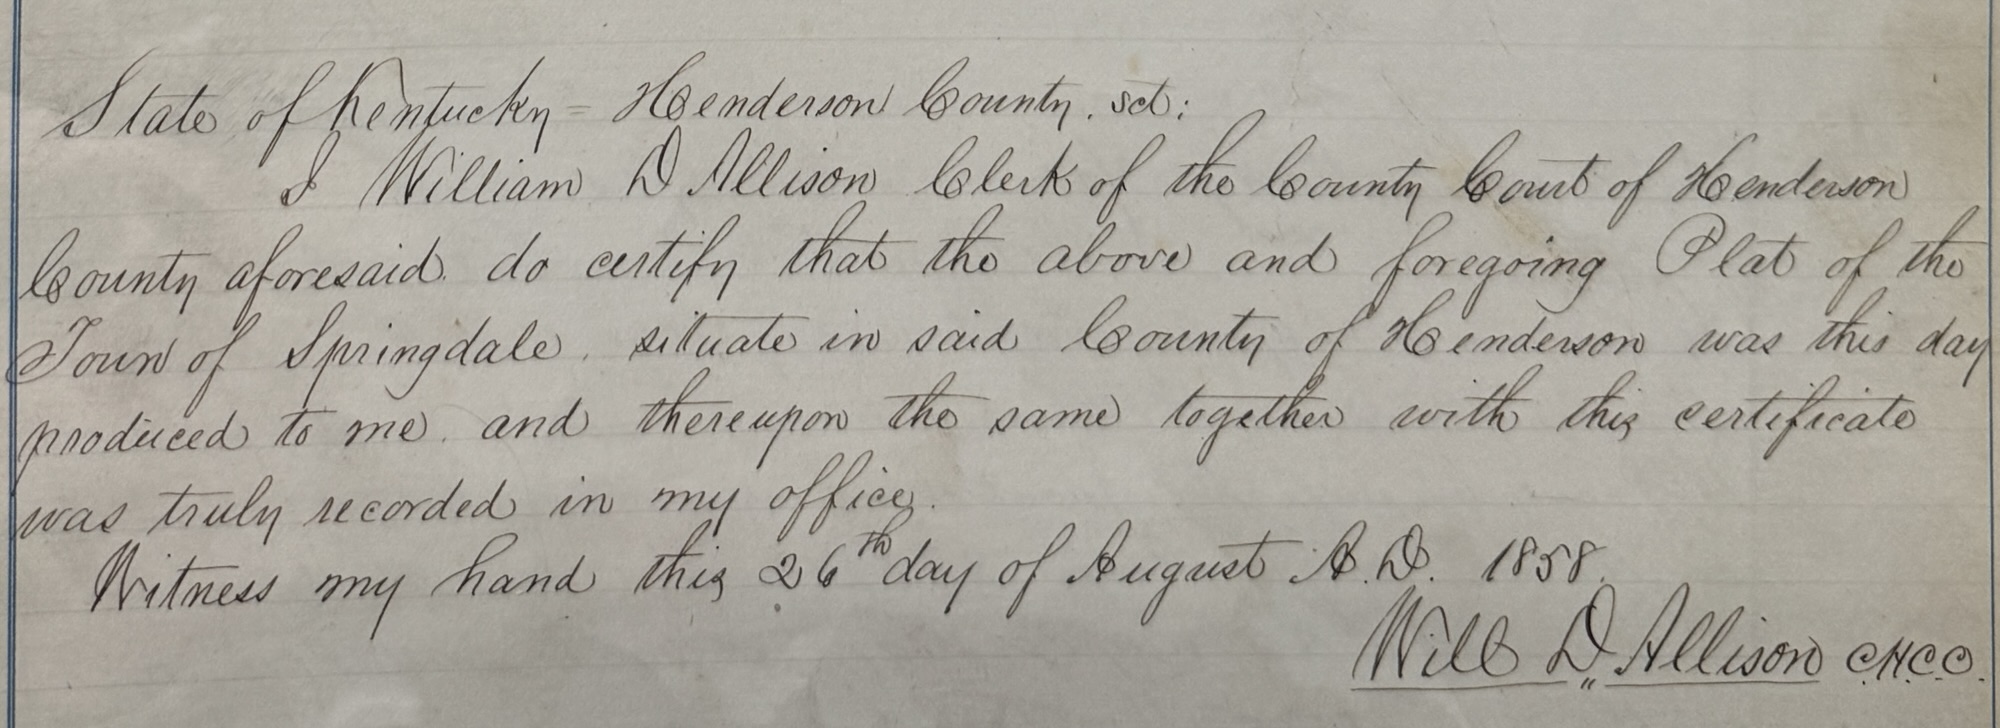 State of Kentucky = Henderson County. sct:
I William D Allison Clerk of the County Court of Henderson
County aforesaid. do certify that the above and foregoing Plat of the
Town of Springdale. situate in said County of Henderson was this day
produced to me. and thereupon the same together with this certificate
was truly recorded in my office.
Witness my hand this 26th day of August A.D. 1858.
Will D. Allison C.H.C.C.